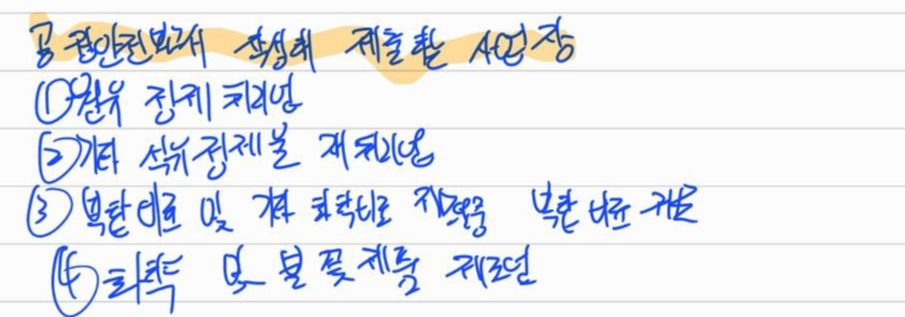 공정안전보고서 작성해 제출할 사업장
① 원유 정제 처리업
② 기타 석유정제물 재처리업
③ 복합비료 및 기타 화학비료 제조업중 복합 비료 제조
④ 화약 및 불꽃제품 제조업